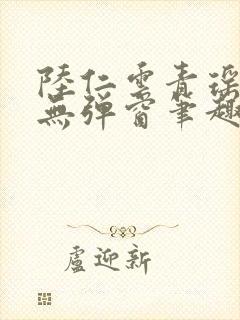 陸仁雲青瑤
無彈窗筆趣
盧迎新